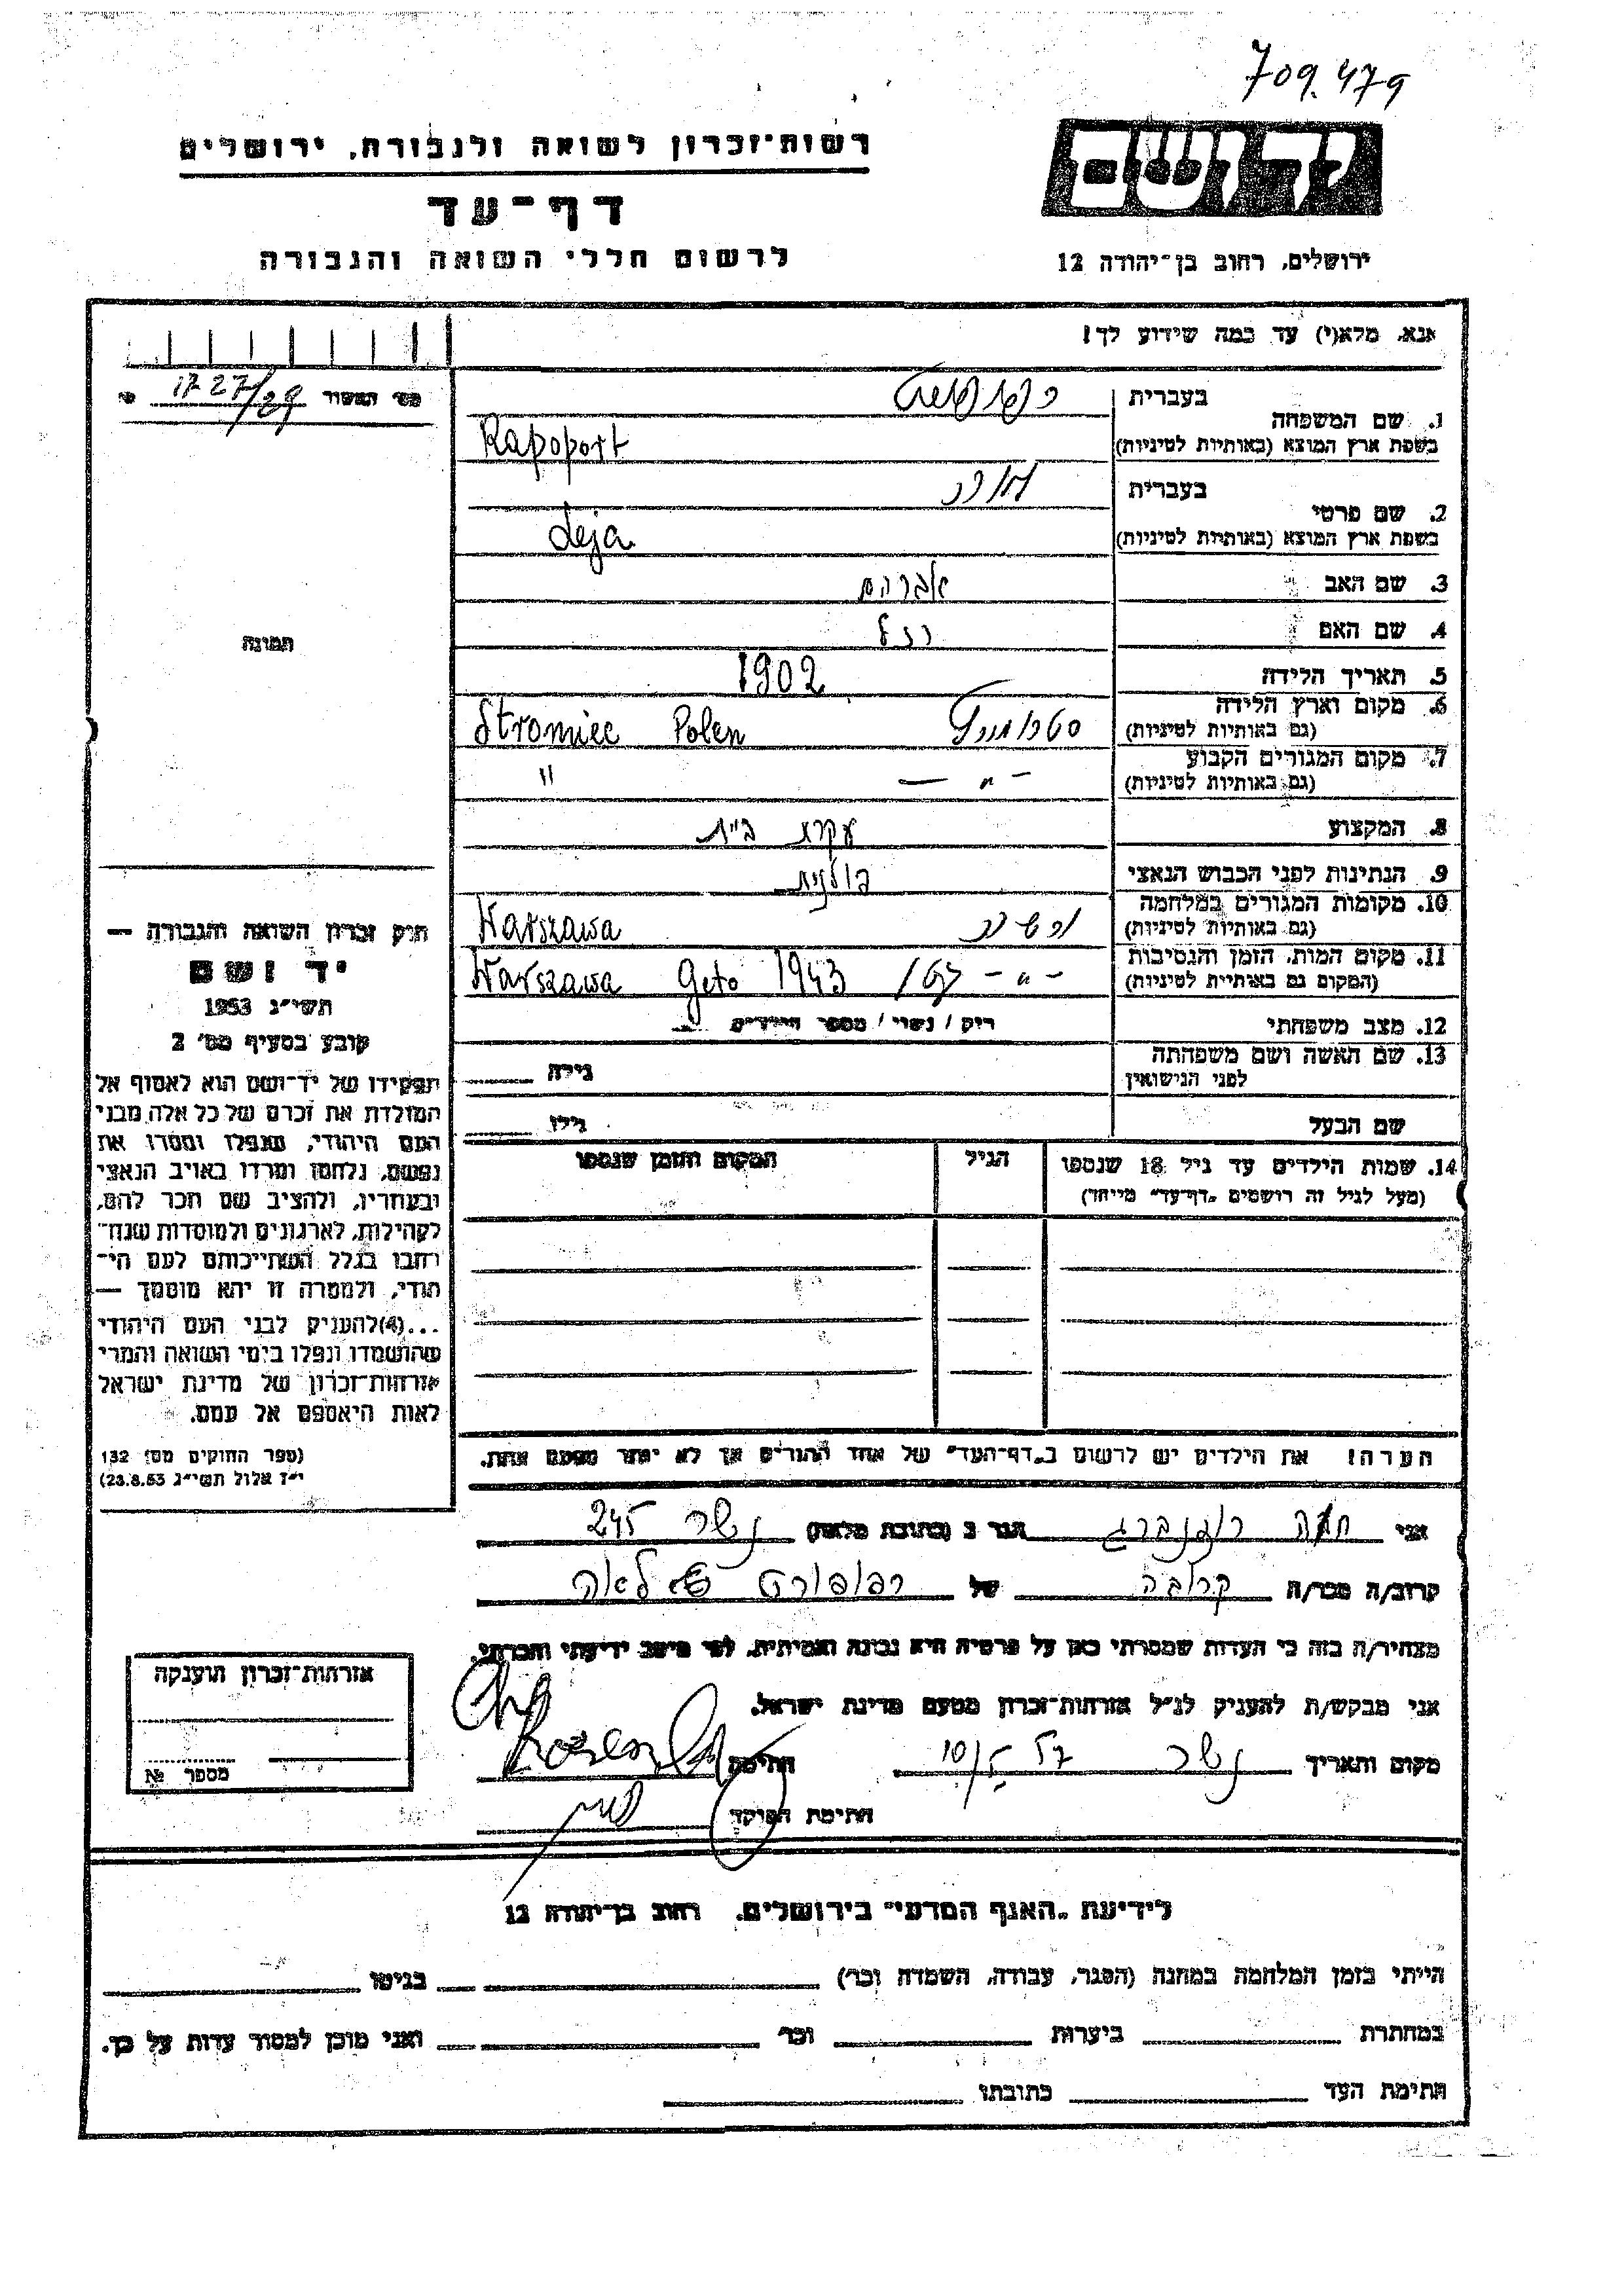 709.479
רשות-זכרון לשואה ולגבורה, ירושלים
דף-עד
לרשום חללי השואה והגבורה
ידושם
ירושלים, רחוב בן-יהודה 12
אנא, מלא(י) עד כמה שידוע לך!
1727/29
1. שם המשפחה
בעברית
בשפת ארץ המוצא (באותיות לטיניות)
רפופורט
Rapoport
2. שם פרטי
בעברית
בשפת ארץ המוצא (באותיות לטיניות)
Leja
3. שם האב אברהם
4. שם האם רזל
5. תאריך הלידה 1902
6. מקום וארץ הלידה
(גם באותיות לטיניות)
Stromiec Polen
7. מקום המגורים הקבוע
(גם באותיות לטיניות)
– " — "
8. המקצוע עקרת בית
9. הנתינות לפני הכבוש הנאצי פולנית
10. מקומות המגורים במלחמה
(גם באותיות לטיניות)
Warszawa
11. מקום המות, הזמן והנסיבות
(המקום גם באותיות לטיניות)
– " – גטו Warszawa Geto 1943
12. מצב משפחתי רוק / נשוי / מספר הילדים
13. שם האשה ושם משפחתה
לפני הנישואין
גילה
שם הבעל גילו
14. שמות הילדים עד גיל 18 שנספו
(מעל לגיל זה רושמים „דף-עד" מייחד)
הגיל
המקום והזמן שנספו
הערה! את הילדים יש לרשום ב„דף-העד" של אחד ההורים אך לא יותר מפעם אחת.
תמונה
חוק זכרון השואה והגבורה —
יד ושם
תשי"ג 1953
קובע בסעיף מס' 2
תפקידו של יד-ושם הוא לאסוף אל
המולדת את זכרם של כל אלה מבני
העם היהודי, שנפלו ומסרו את
נפשם, נלחמו ומרדו באויב הנאצי
ובעוזריו, ולהציב שם וזכר להם,
לקהילות, לארגונים ולמוסדות שנח-
רבו בגלל השתייכותם לעם הי-
הודי, ולמטרה זו יהא מוסמך —
...(4)להעניק לבני העם היהודי
שהושמדו ונפלו בימי השואה והמרי
אזרחות-זכרון של מדינת ישראל
לאות היאספם אל עמם.
(ספר החוקים מס' 132
י"ז אלול תשי"ג 23.8.53)
אני חנה רוזנברג הגר ב (כתובת מלאה) נשר 245
קרוב/ה מכר/ה קרובה של רפופורט לאה
מצהיר/ה בזה כי העדות שמסרתי כאן על פרטיה היא נכונה ואמיתית, לפי מיטב ידיעתי והכרתי.
אני מבקש/ת להעניק לנ"ל אזרחות-זכרון מטעם מדינת ישראל.
מקום ותאריך נשר 10/5 57 חתימה
חתימת הפוקד
אזרחות-זכרון הוענקה
מספר №
לידיעת „האגף המדעי" בירושלים, רחוב בן-יהודה 12
הייתי בזמן המלחמה במחנה (הסגר, עבודה, השמדה וכו') בגיטו
במחתרת ביערות וכו' ואני מוכן למסור עדות על כך.
חתימת העד כתובתו